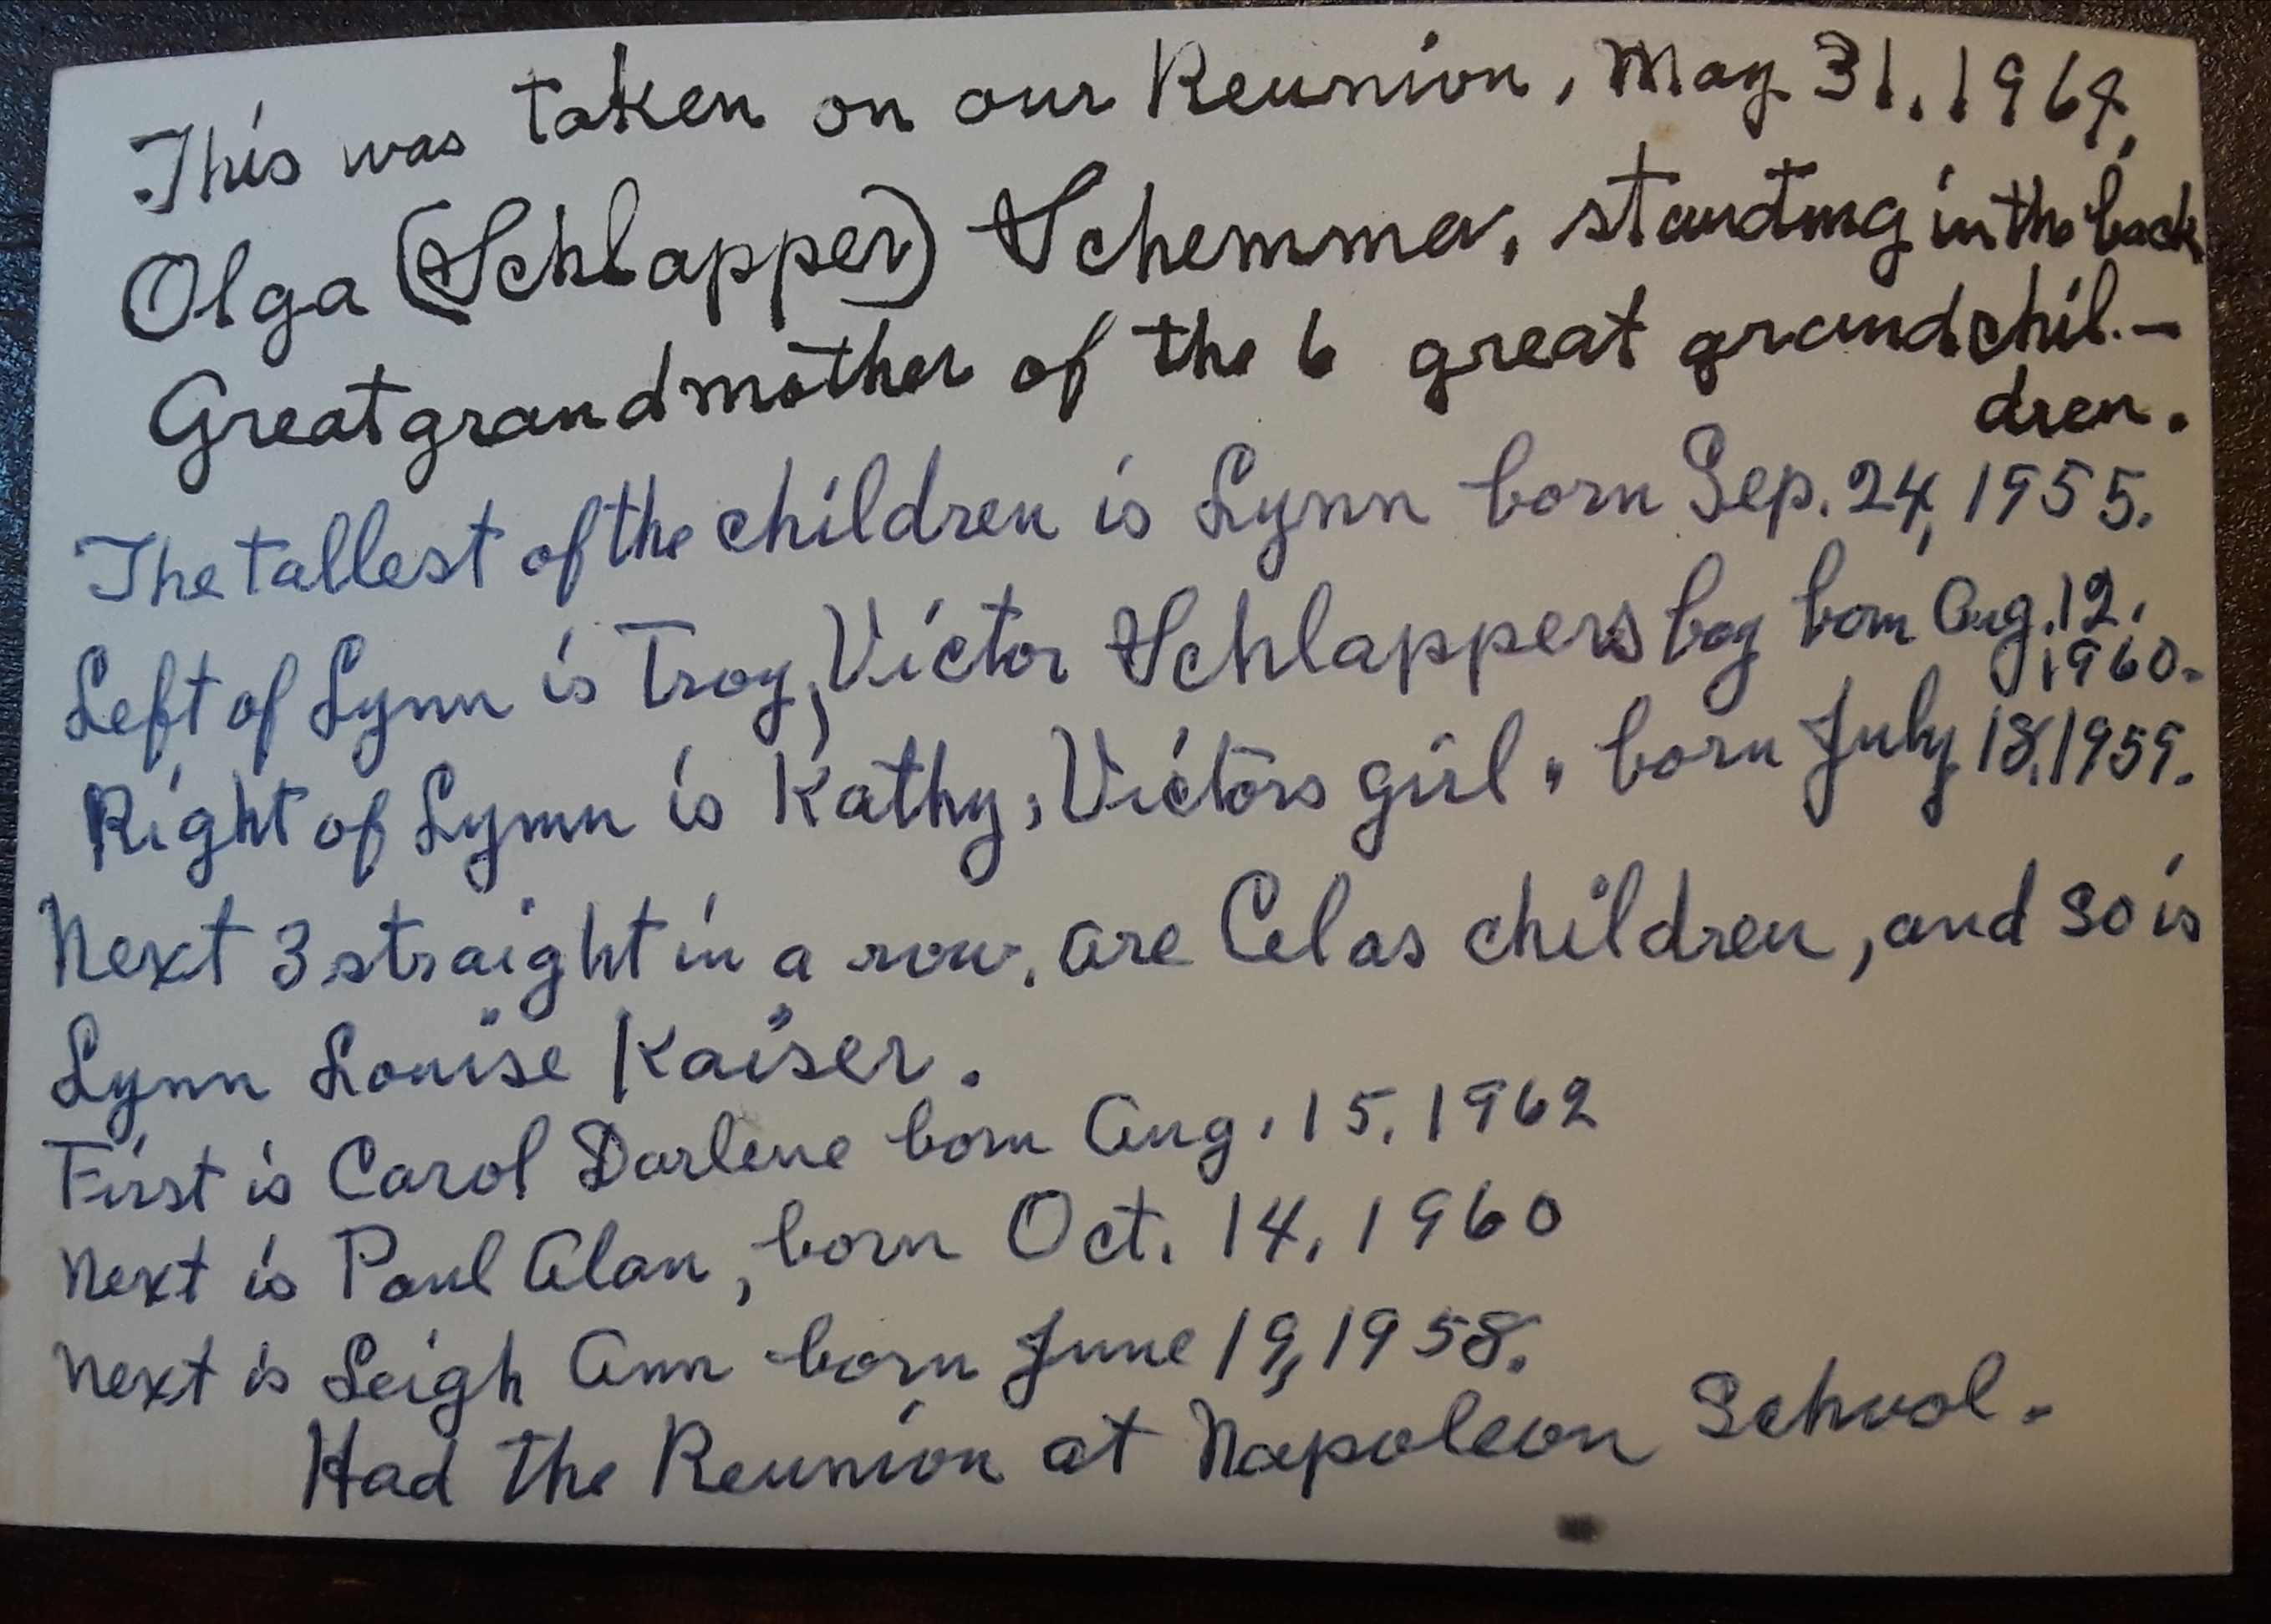 This was taken on our Reunion, May 31, 1964,
Olga (Schlapper) Schemmer, standing in the back
Great grandmother of the 6 great grandchil.-
dren.
The tallest of the children is Lynn born Sep. 24, 1955.
Left of Lynn is Troy, Victor Schlappers boy born Aug. 12.
1960.
Right of Lynn is Kathy, Victors girl, born July 18, 1959.
Next 3 straight in a row, are Celas children, and so is
Lynn Louise Kaiser.
First is Carol Darlene born Aug. 15, 1962
Next is Paul Alan, born Oct. 14, 1960
Next is Leigh Ann born June 19, 1958.
Had the Reunion at Napoleon School.